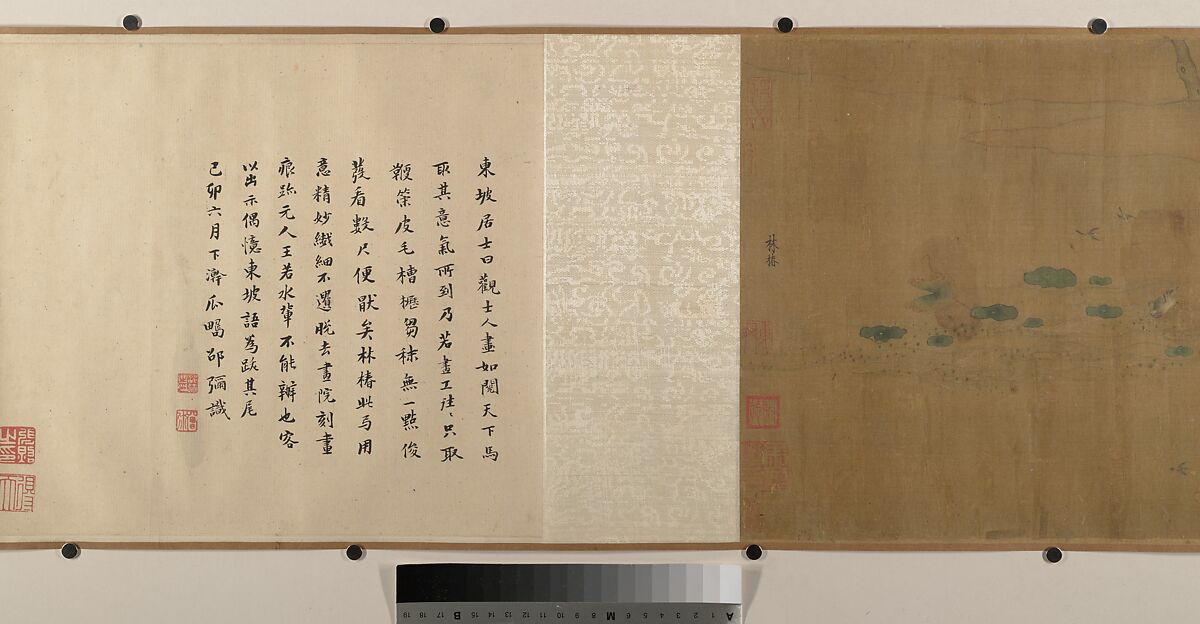 林椿
東坡居士曰觀士人畫如閱天下馬
取其意氣所到乃若畫工往〻只取
鞭策皮毛槽櫪芻秣無一點俊
發看數尺便厭矣林椿此与用
意精妙纎細不遺脫去畫院刻畫
痕跡元人王若水軰不能辨也客
以出示偶憶東坡語為跋其尾
己卯六月下澣瓜疇邵彌識
A 1 2 3 4 5 6 M 8 9 10 11 12 13 14 15 B 17 18 19